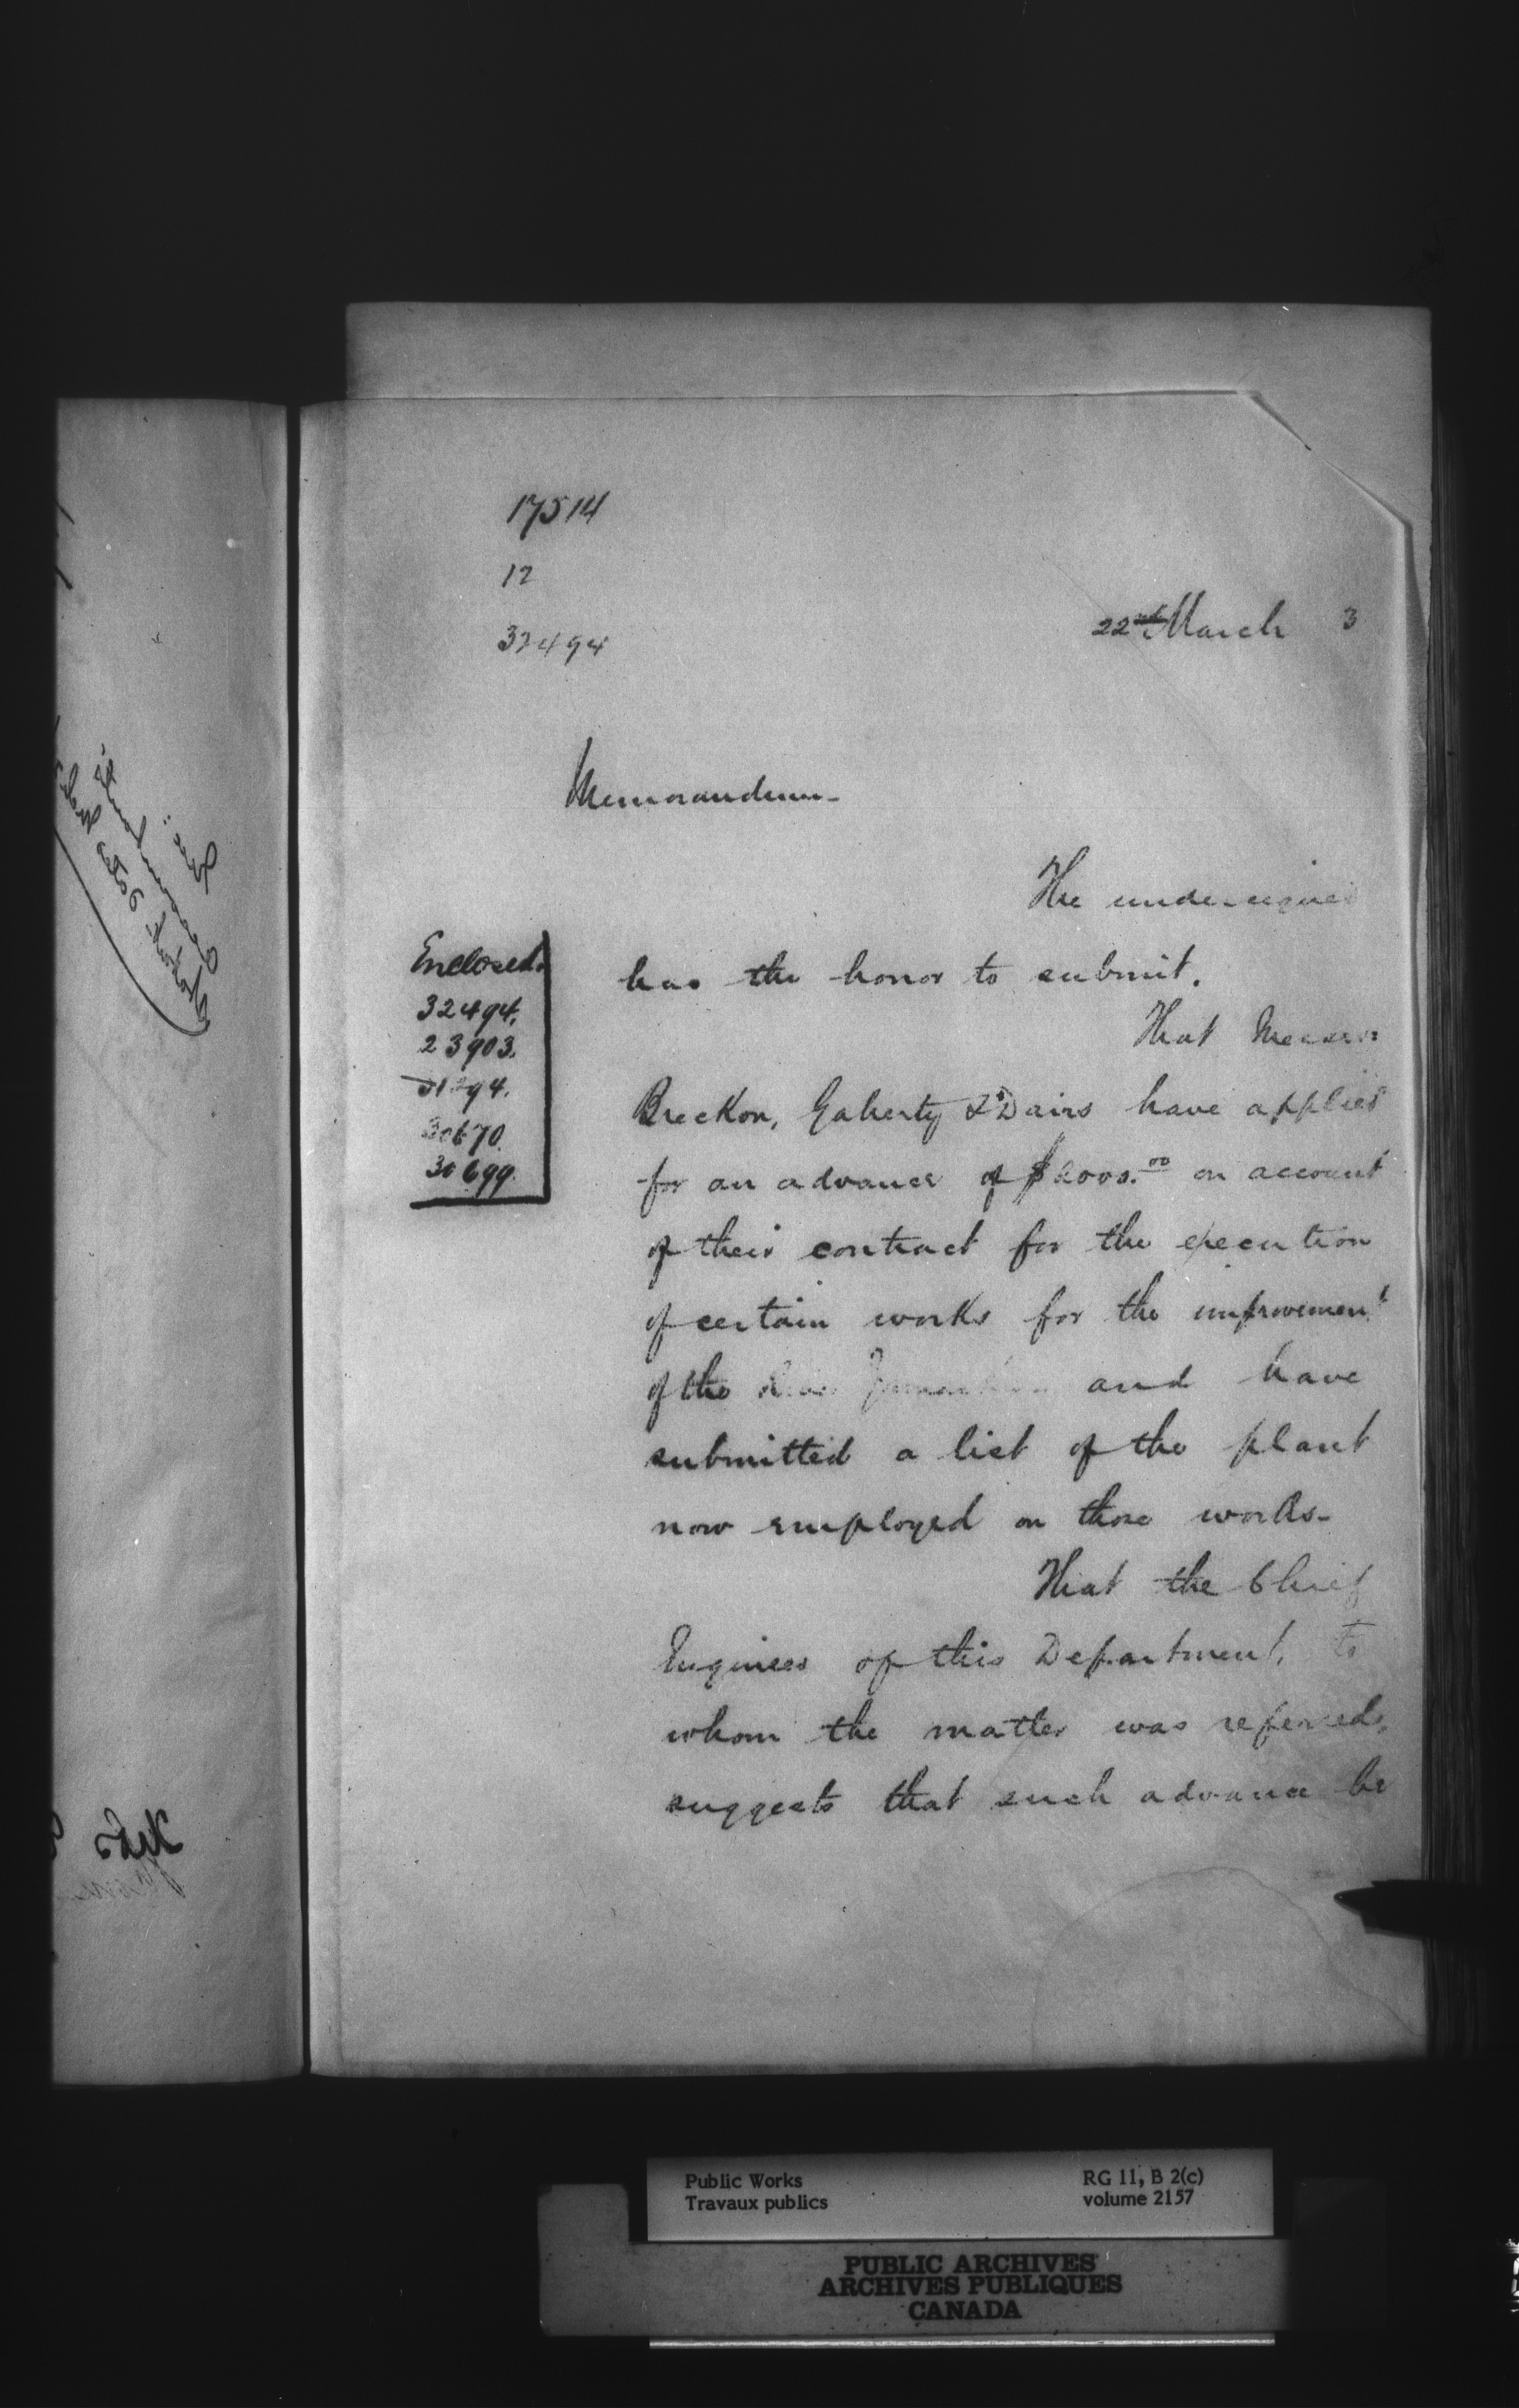 17514
12
32494
22nd March 3
Memorandum-
The undersigned
has the honor to submit.
That Messrs
Breckon, Gaherty & Davis have applied
for an advance of $ on account
of their contract for the execution
of certain works for the improvement
of the River and have
submitted a list of the plant
now employed on those works-
That the Chief
Engineer of this Department, to
whom the matter was referred,
suggests that such advance be
Enclosed.
32494.
23903.
30670.
30699.
Public Works
Travaux publics
RG 11, B 2(c)
volume 2157
PUBLIC ARCHIVES
ARCHIVES PUBLIQUES
CANADA